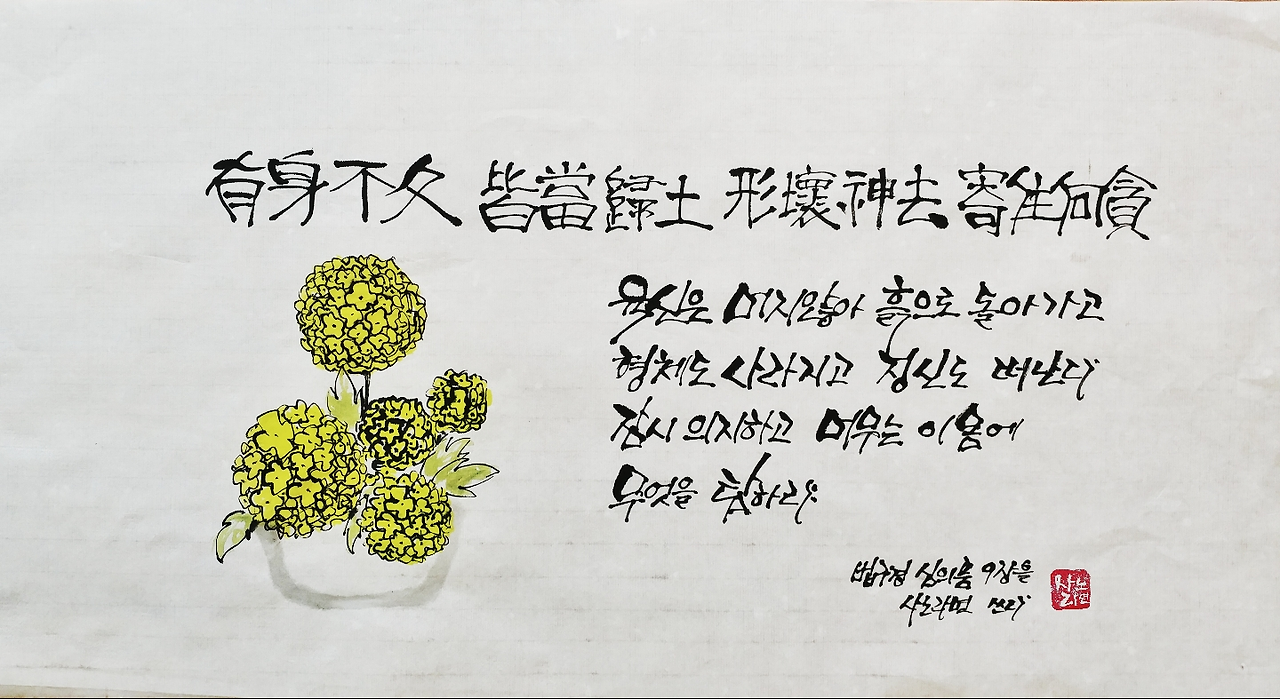 有身不久 皆當歸土 形壞神去 寄住何貪
육신은 머지않아 흙으로 돌아가고
형체도 사라지고 정신도 떠난다
잠시 의지하고 머무는 이몸에
무엇을 탐하랴
법구경 심의품 9장을
사노라면 쓰다
사노라면